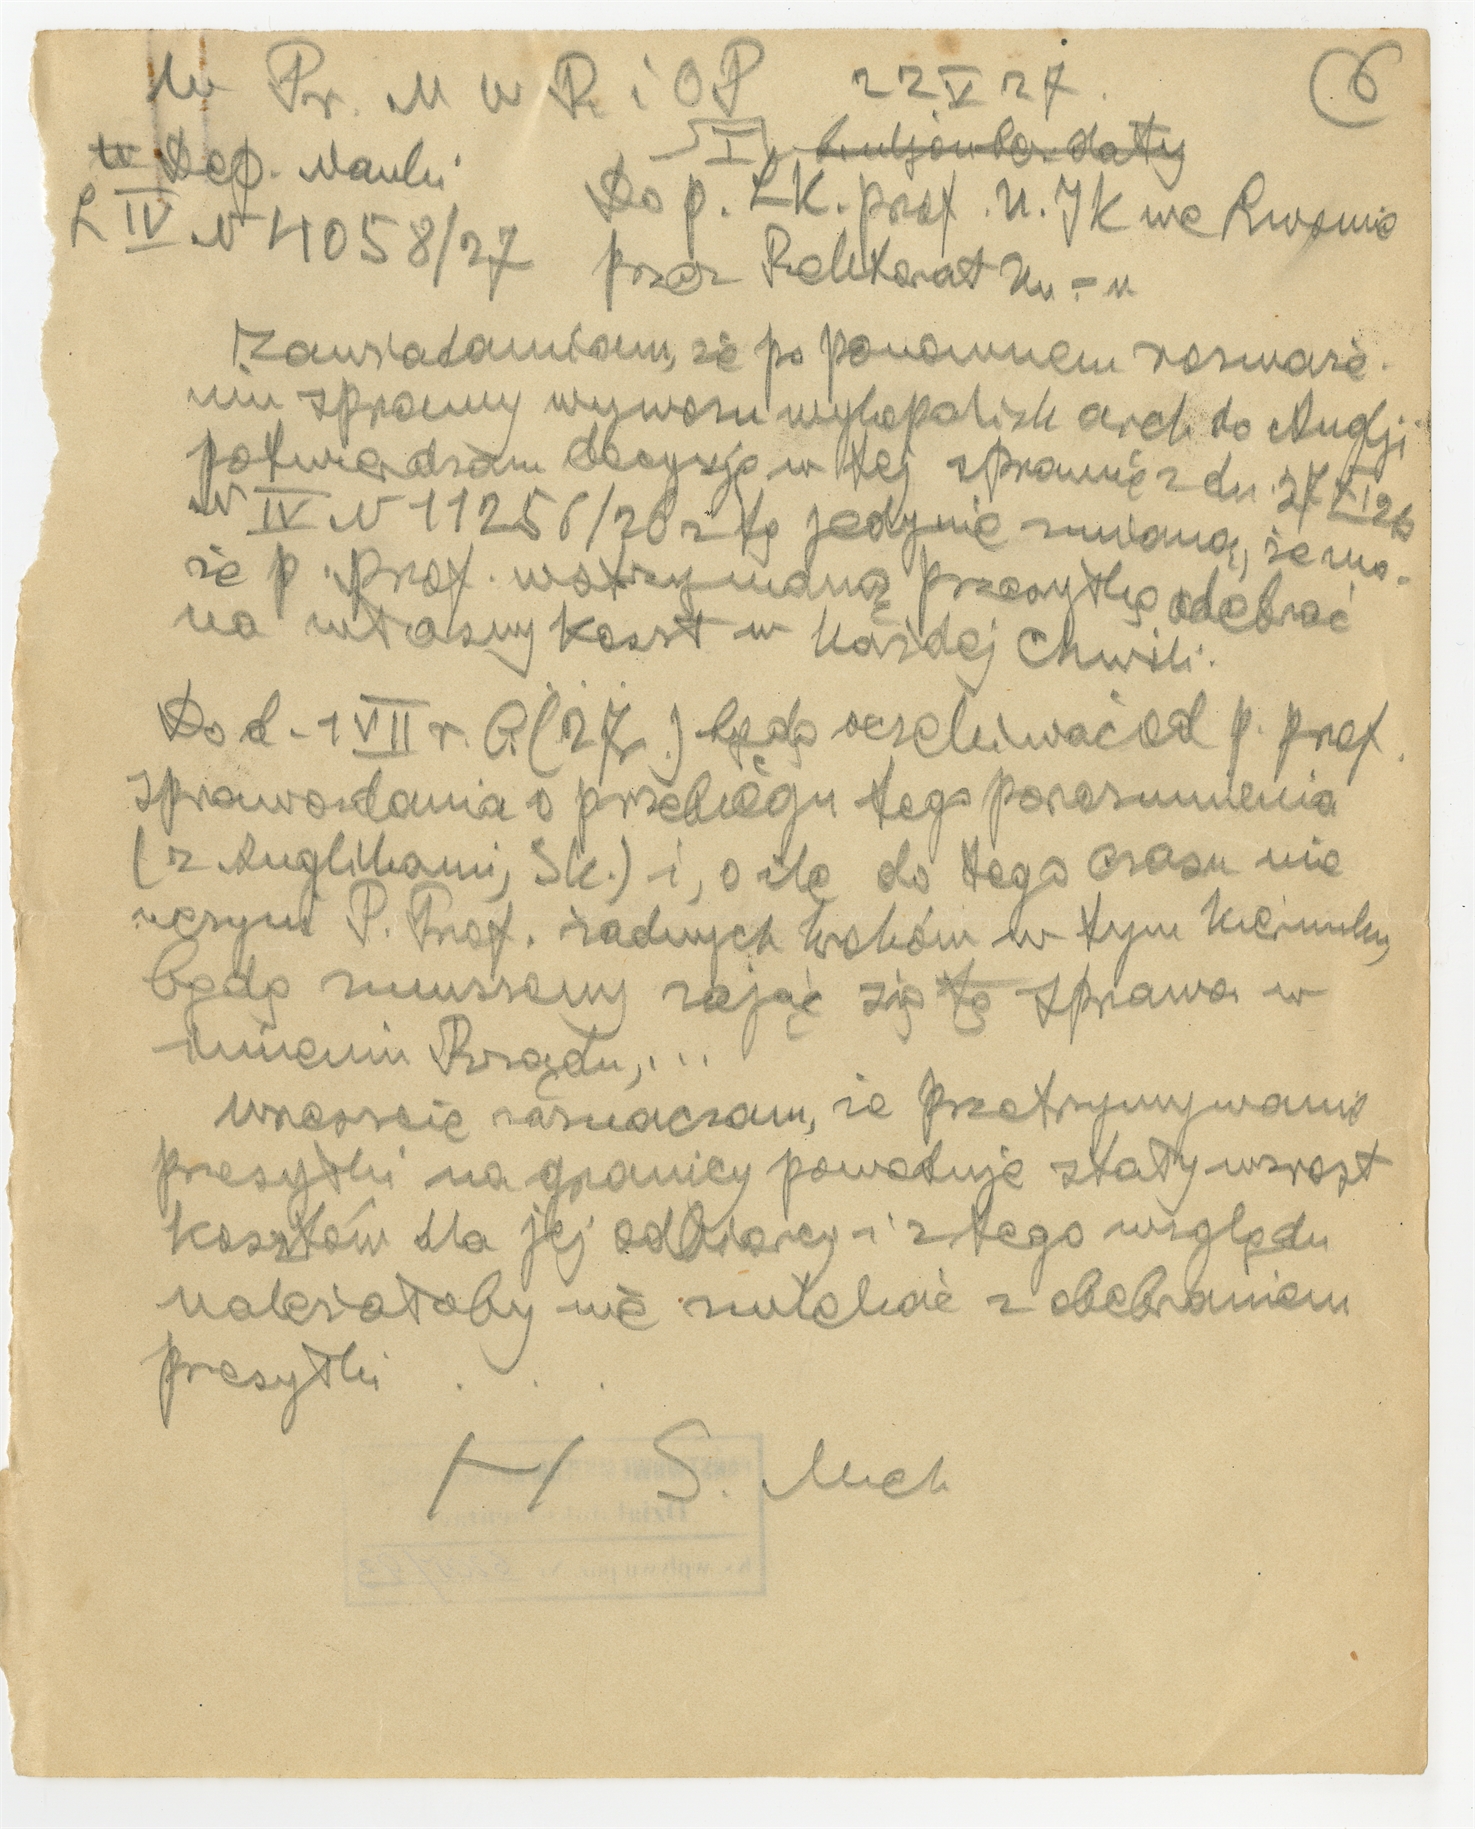 Pr. M W R i O P 22 V 27. 6
Dep. Nauki I daty
L IV N 4058/27 Do p. LK. prof. U. JK we Lwowie
przez Rektorat Un-u
Zawiadamiam, że po ponownem rozważe-
niu sprawy wywozu wykopalisk arch do Anglji
potwierdzam decyzję w tej sprawie z dn. 27 26
N IV N 11256/26 z tą jedynie zmianą, że mo-
że p. prof. wstrzymaną przesyłkę odebrać
na własny koszt w każdej chwili.
Do d. 1 VII r. b. (27 r.) będę oczekiwać od p. prof.
sprawozdania o przebiegu tego porozumienia
(z Anglikami, SK.) i, o ile do tego czasu nie
uczyni P. Prof. żadnych kroków w tym kierunku,
będę zmuszony zająć się tą sprawą w
imieniu Rządu,...
Wreszcie zaznaczam, że przetrzymywanie
przesyłki na granicy powoduje stały wzrost
kosztów dla jej odbiorcy i z tego względu
należałoby nie zwlekać z odebraniem
przesyłki . . .
S. Mich